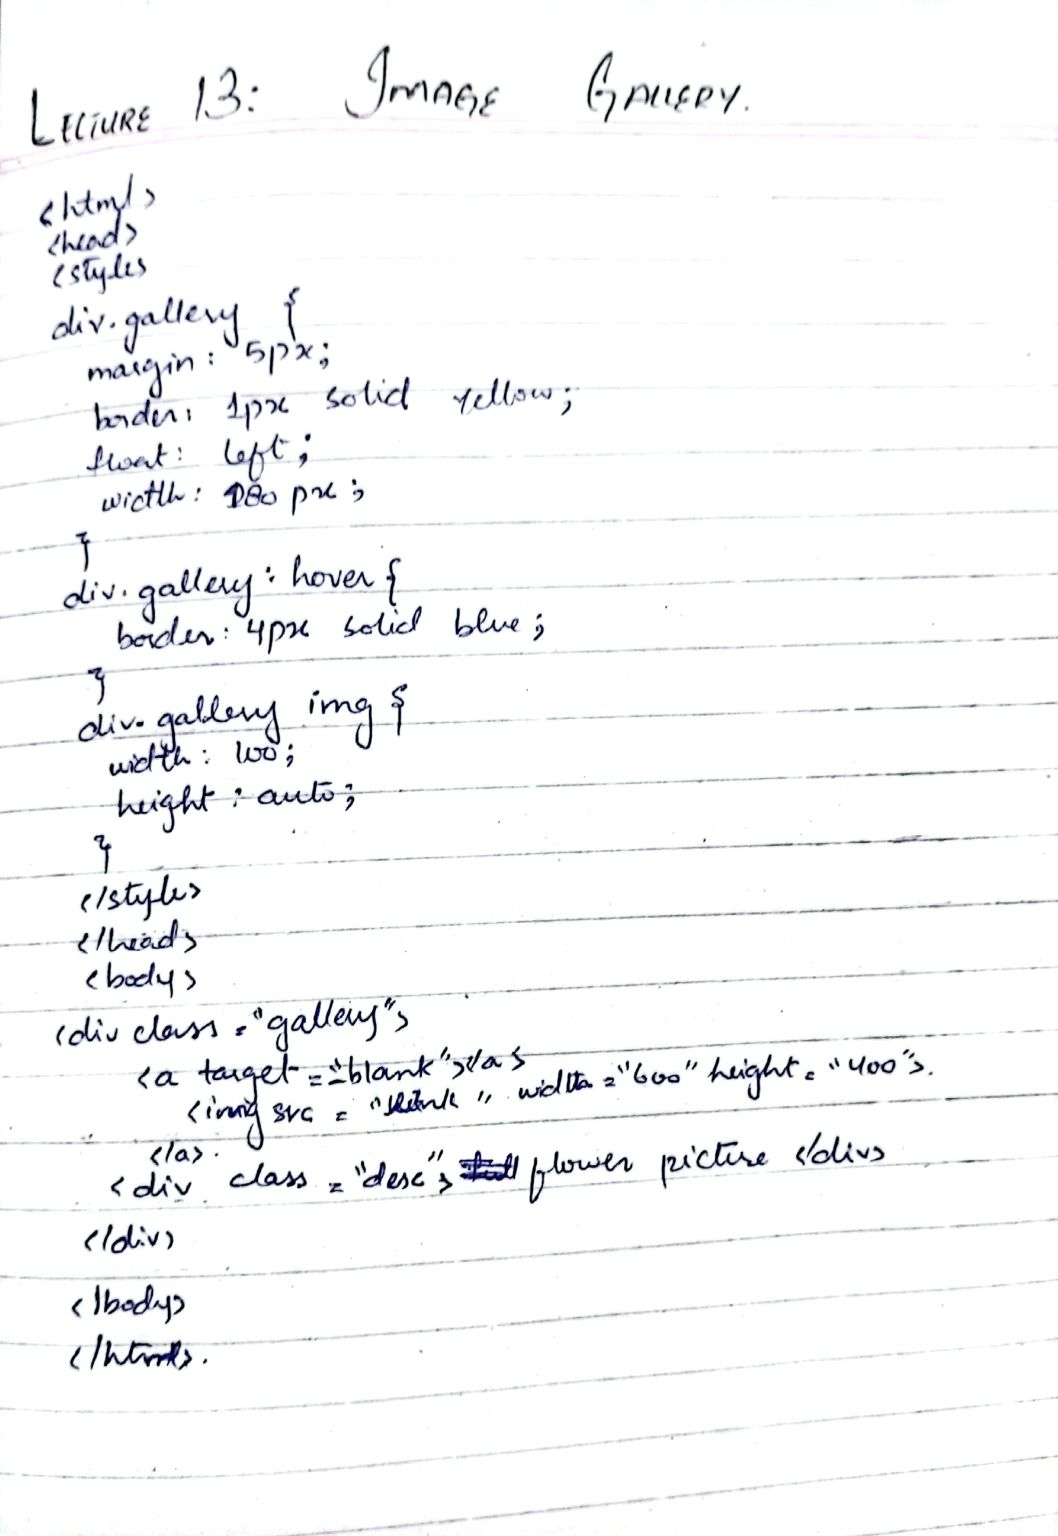 LECTURE 13: IMAGE GALLERY.
<html>
<head>
<style>
div.gallery {
margin: 5px;
border: 1px solid yellow;
float: left;
width: 180 px;
}
div.gallery: hover {
border: 4px solid blue;
}
div.gallery img {
width: 100;
height: auto;
}
</style>
</head>
<body>
<div class="gallery">
<a target="_blank"></a>
<img src = "link" width="600" height="400">.
</a>.
<div class="desc"> flower picture </div>
</div>
</body>
</html>.